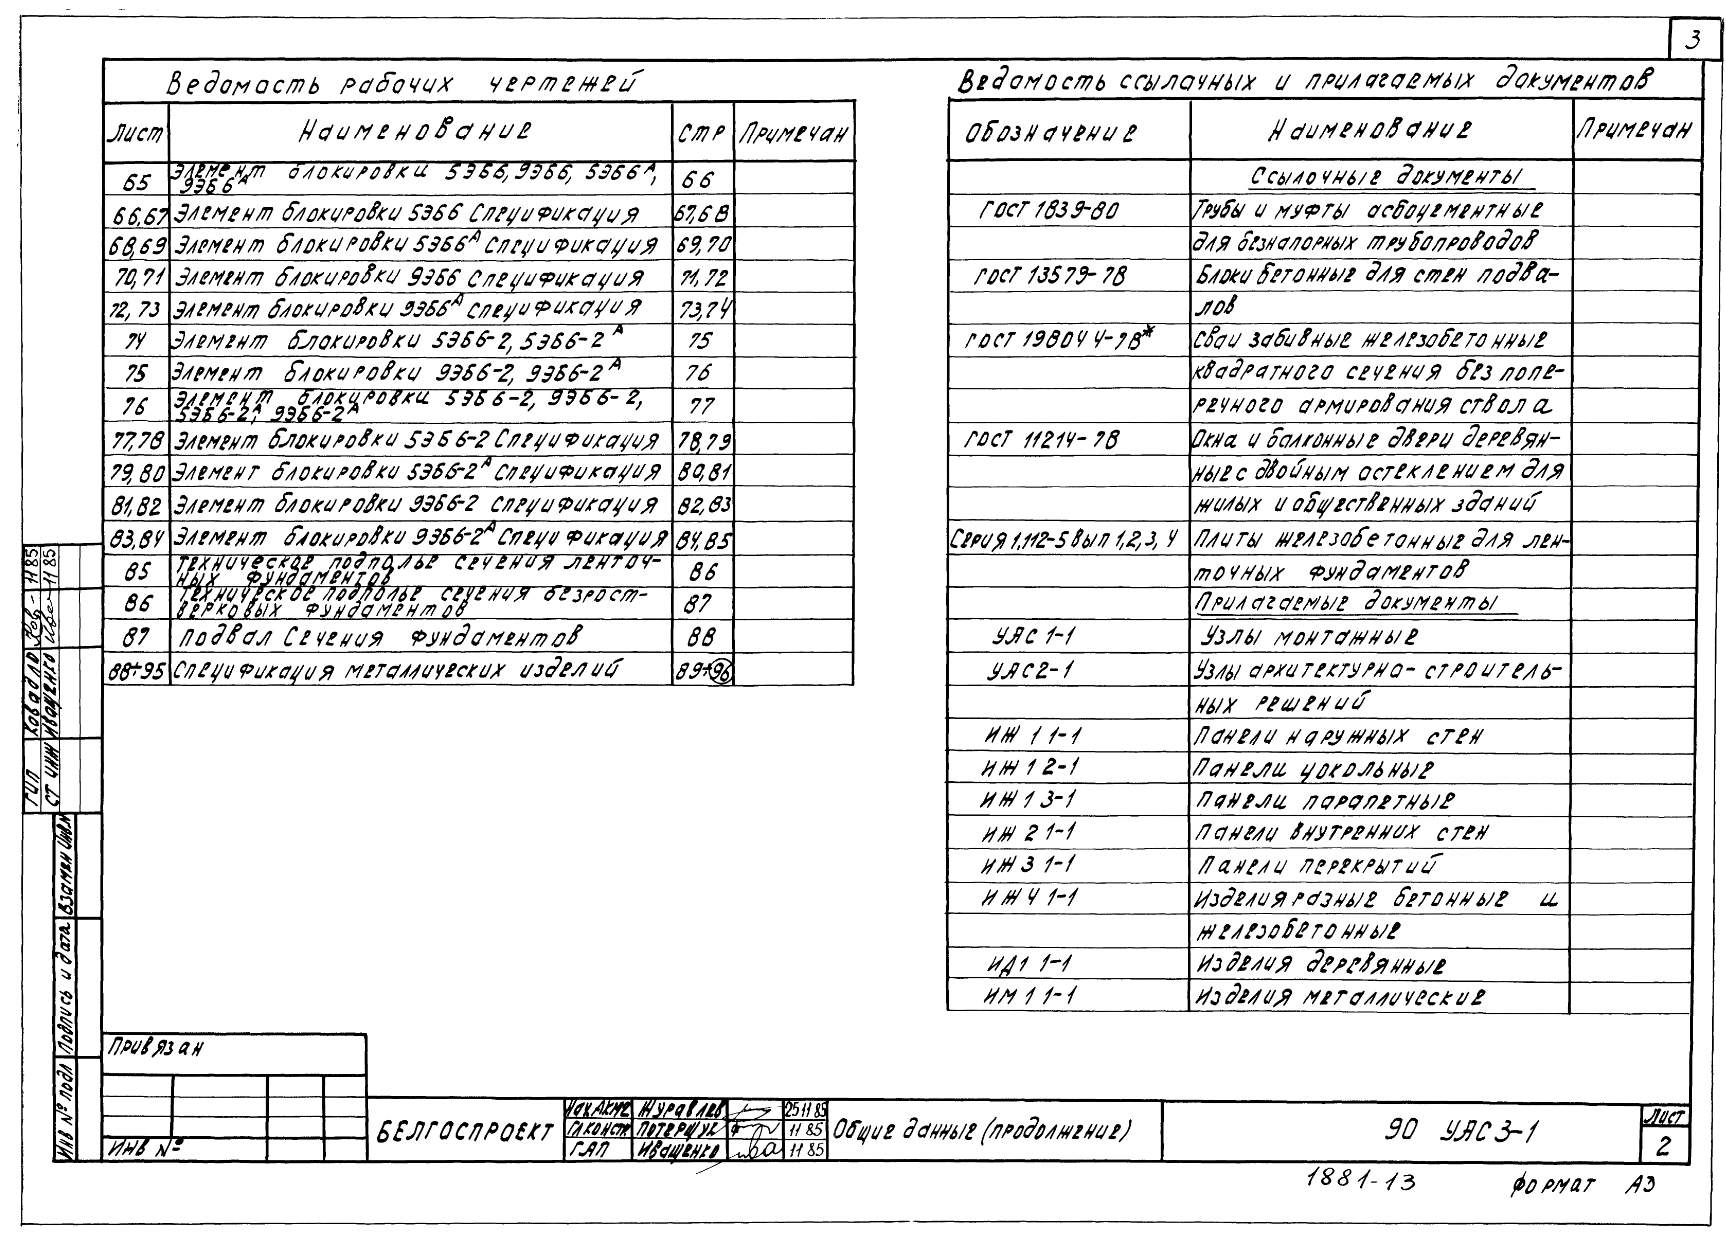 3
Ведомость рабочих чертежей
Лист Наименование Стр Примечан
65 Элемент блокировки 5ЭБ6, 9ЭБ6, 5ЭБ6А, 9ЭБ6А 66
66,67 Элемент блокировки 5ЭБ6 Спецификация 67,68
68,69 Элемент блокировки 5ЭБ6А Спецификация 69,70
70,71 Элемент блокировки 9ЭБ6 Спецификация 71,72
72,73 Элемент блокировки 9ЭБ6А Спецификация 73,74
74 Элемент блокировки 5ЭБ6-2, 5ЭБ6-2А 75
75 Элемент блокировки 9ЭБ6-2, 9ЭБ6-2А 76
76 Элемент блокировки 5ЭБ6-2, 9ЭБ6-2, 5ЭБ6-2А, 9ЭБ6-2А 77
77,78 Элемент блокировки 5ЭБ6-2 Спецификация 78,79
79,80 Элемент блокировки 5ЭБ6-2А Спецификация 80,81
81,82 Элемент блокировки 9ЭБ6-2 Спецификация 82,83
83,84 Элемент блокировки 9ЭБ6-2А Спецификация 84,85
85 Техническое подполье сечения ленточ-
ных фундаментов 86
86 Техническое подполье сечения безрост-
верковых фундаментов 87
87 Подвал Сечения фундаментов 88
88÷95 Спецификация металлических изделий 89÷96
Ведомость ссылочных и прилагаемых документов
Обозначение Наименование Примечан
Ссылочные документы
ГОСТ 1839-80 Трубы и муфты асбоцементные
для безнапорных трубопроводов
ГОСТ 13579-78 Блоки бетонные для стен подва-
лов
ГОСТ 19804 4-78* Сваи забивные железобетонные
квадратного сечения без попе-
речного армирования ствола
ГОСТ 11214-78 Окна и балконные двери деревян-
ные с двойным остеклением для
жилых и общественных зданий
Серия 1.112-5 вып 1,2,3,4 Плиты железобетонные для лен-
точных фундаментов
Прилагаемые документы
УАС 1-1 Узлы монтажные
УАС2-1 Узлы архитектурно-строитель-
ных решений
ИЖ 1 1-1 Панели наружных стен
ИЖ 1 2-1 Панели цокольные
ИЖ 1 3-1 Панели парапетные
ИЖ 2 1-1 Панели внутренних стен
ИЖ 3 1-1 Панели перекрытий
ИЖ 4 1-1 Изделия разные бетонные и
железобетонные
ИД1 1-1 Изделия деревянные
ИМ 1 1-1 Изделия металлические
ГИП Ковадло 11 85
СТ ИНЖ Иващенко 11 85
Инв № подл Подпись и дата Взам ин Инв.N
Привязан
Инв №
БЕЛГОСПРОЕКТ
Нач.АКМ2 Журавлев 25 11 85
Гл констр Потерщук 11 85
ГАП Иващенко 11 85
Общие данные (продолжение)
90 УАС 3-1
Лист
2
1881-13 Формат А3